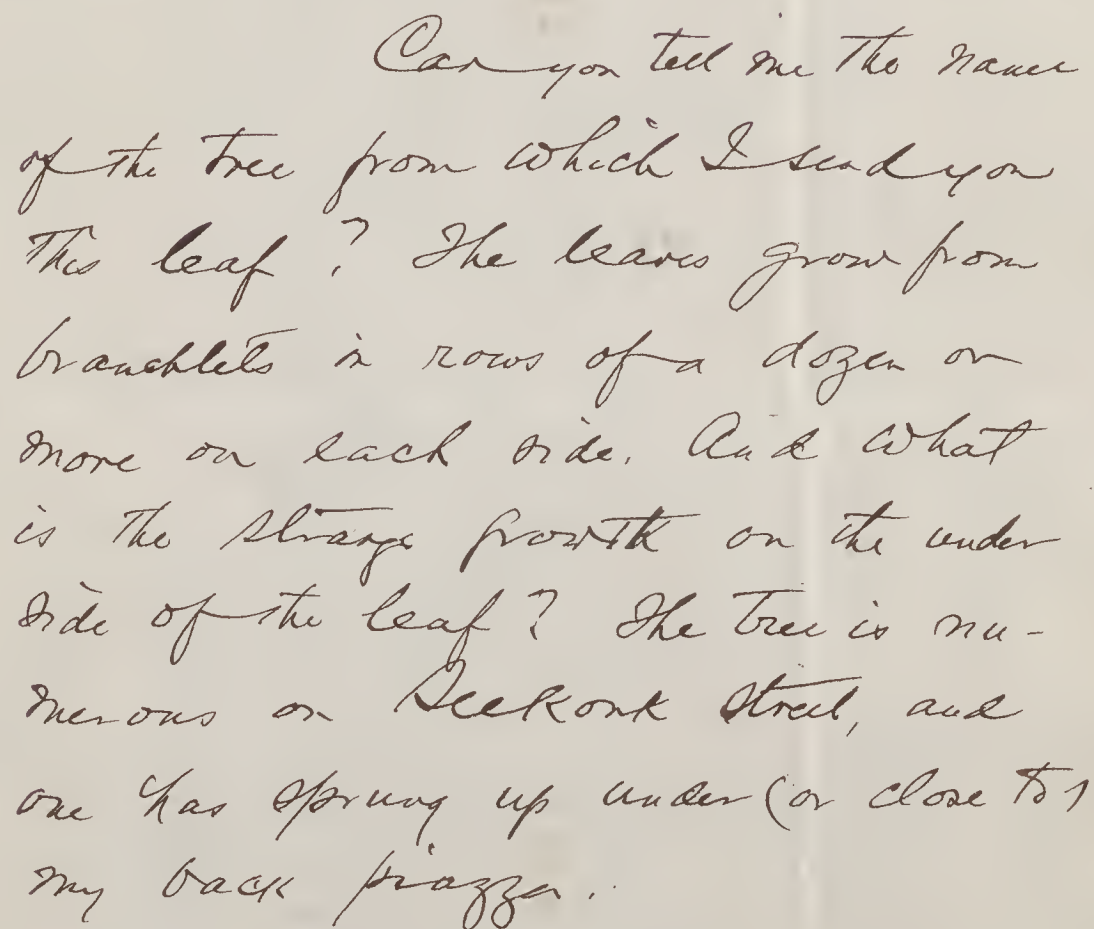 Can you tell me the name
of the tree from which I send you
this leaf? The leaves grow from
branchlets in rows of a dozen or
more on each side. And what
is the strange growth on the under
side of the leaf? The tree is nu-
merous on Seekonk Street, and
one has sprung up under (or close to)
my back piazza.